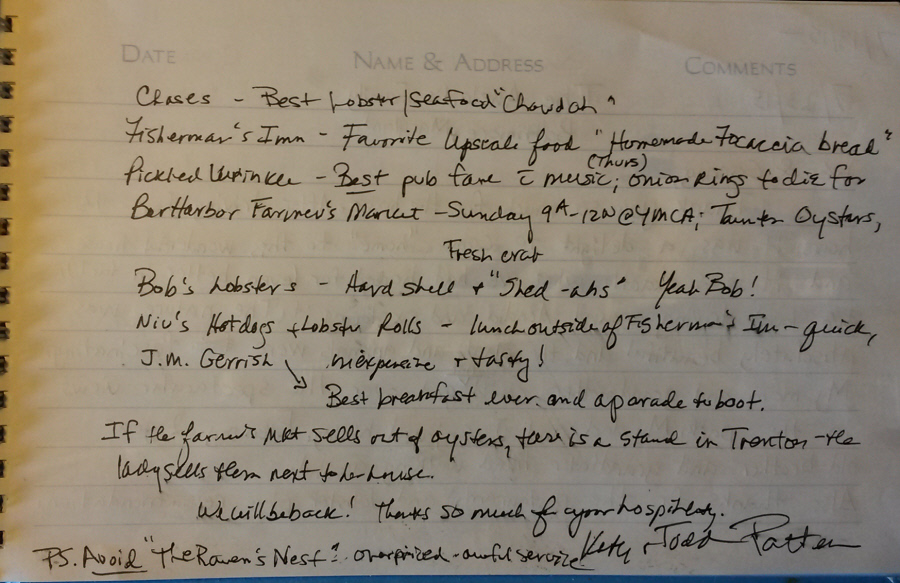 DATE NAME & ADDRESS COMMENTS
Chases - Best Lobster/Seafood "Chowdah"
Fisherman's Inn - Favorite Upscale food "Homemade Focaccia bread"
(Thurs)
Pickled Wrinkle - Best pub fare c̄ music; onion rings to die for
Bar Harbor Farmer's Market - Sunday 9A-12N @ YMCA; Oysters,
Fresh crab
Bob's Lobsters - Hard shell + "Shed-ahs" Yeah Bob!
Hotdogs + Lobster Rolls - lunch outside of Fisherman's Inn - quick,
J.M. Gerrish ↘ inexpensive + tasty!
Best breakfast ever and a parade to boot.
If the farmer's mkt sells out of oysters, there is a stand in Trenton - the
lady sells them next to her house.
We will be back! Thanks so much for your hospitality.
P.S. Avoid "The Raven's Nest": overpriced - awful service & Todd Patten